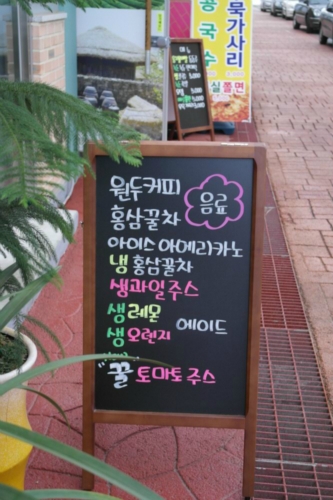 원두커피
음료
홍삼꿀차
아이스 아메리카노
냉 홍삼꿀차
생과일주스
생 레몬
생 오렌지
에이드
"꿀 토마토 주스
콩국수
묵가사리
실 쫄면